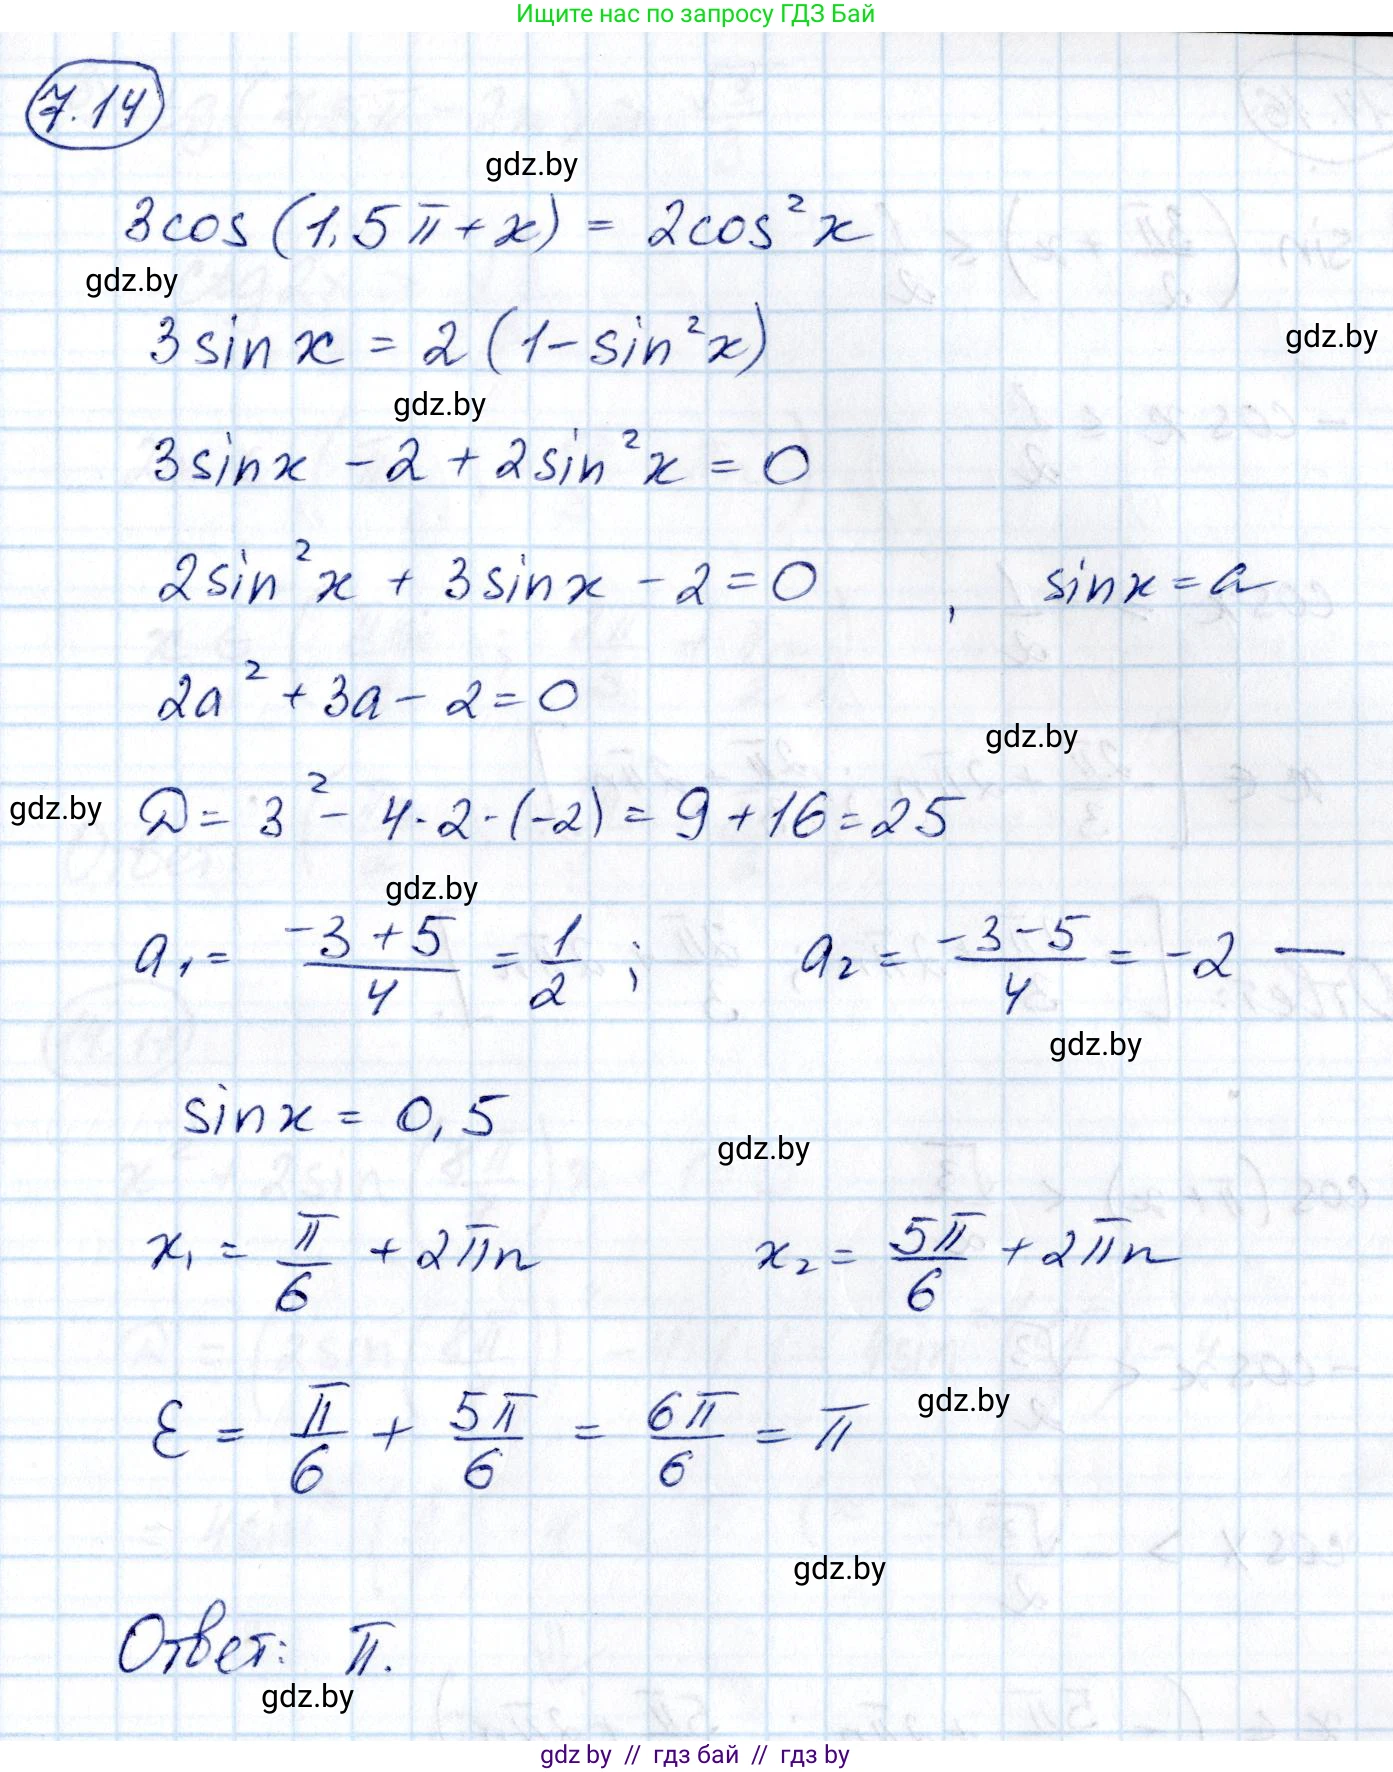 Ищите нас по запросу ГДЗ Бай
7.14
gdz.by
3cos(1,5π+x) = 2cos²x
gdz.by
3sin x = 2(1-sin²x)
gdz.by
gdz.by
3sinx - 2 + 2sin²x = 0
2sin²x + 3sinx - 2 = 0 , sinx = a
2a² + 3a - 2 = 0
gdz.by
gdz.by
D = 3² - 4·2·(-2) = 9 + 16 = 25
gdz.by
a₁ = (-3+5)/4 = 1/2 ; a₂ = (-3-5)/4 = -2 —
gdz.by
sinx = 0,5
gdz.by
x₁ = π/6 + 2πn x₂ = 5π/6 + 2πn
gdz.by
Ɛ = π/6 + 5π/6 = 6π/6 = π
gdz.by
Ответ: π.
gdz.by
gdz by // гдз бай // гдз by